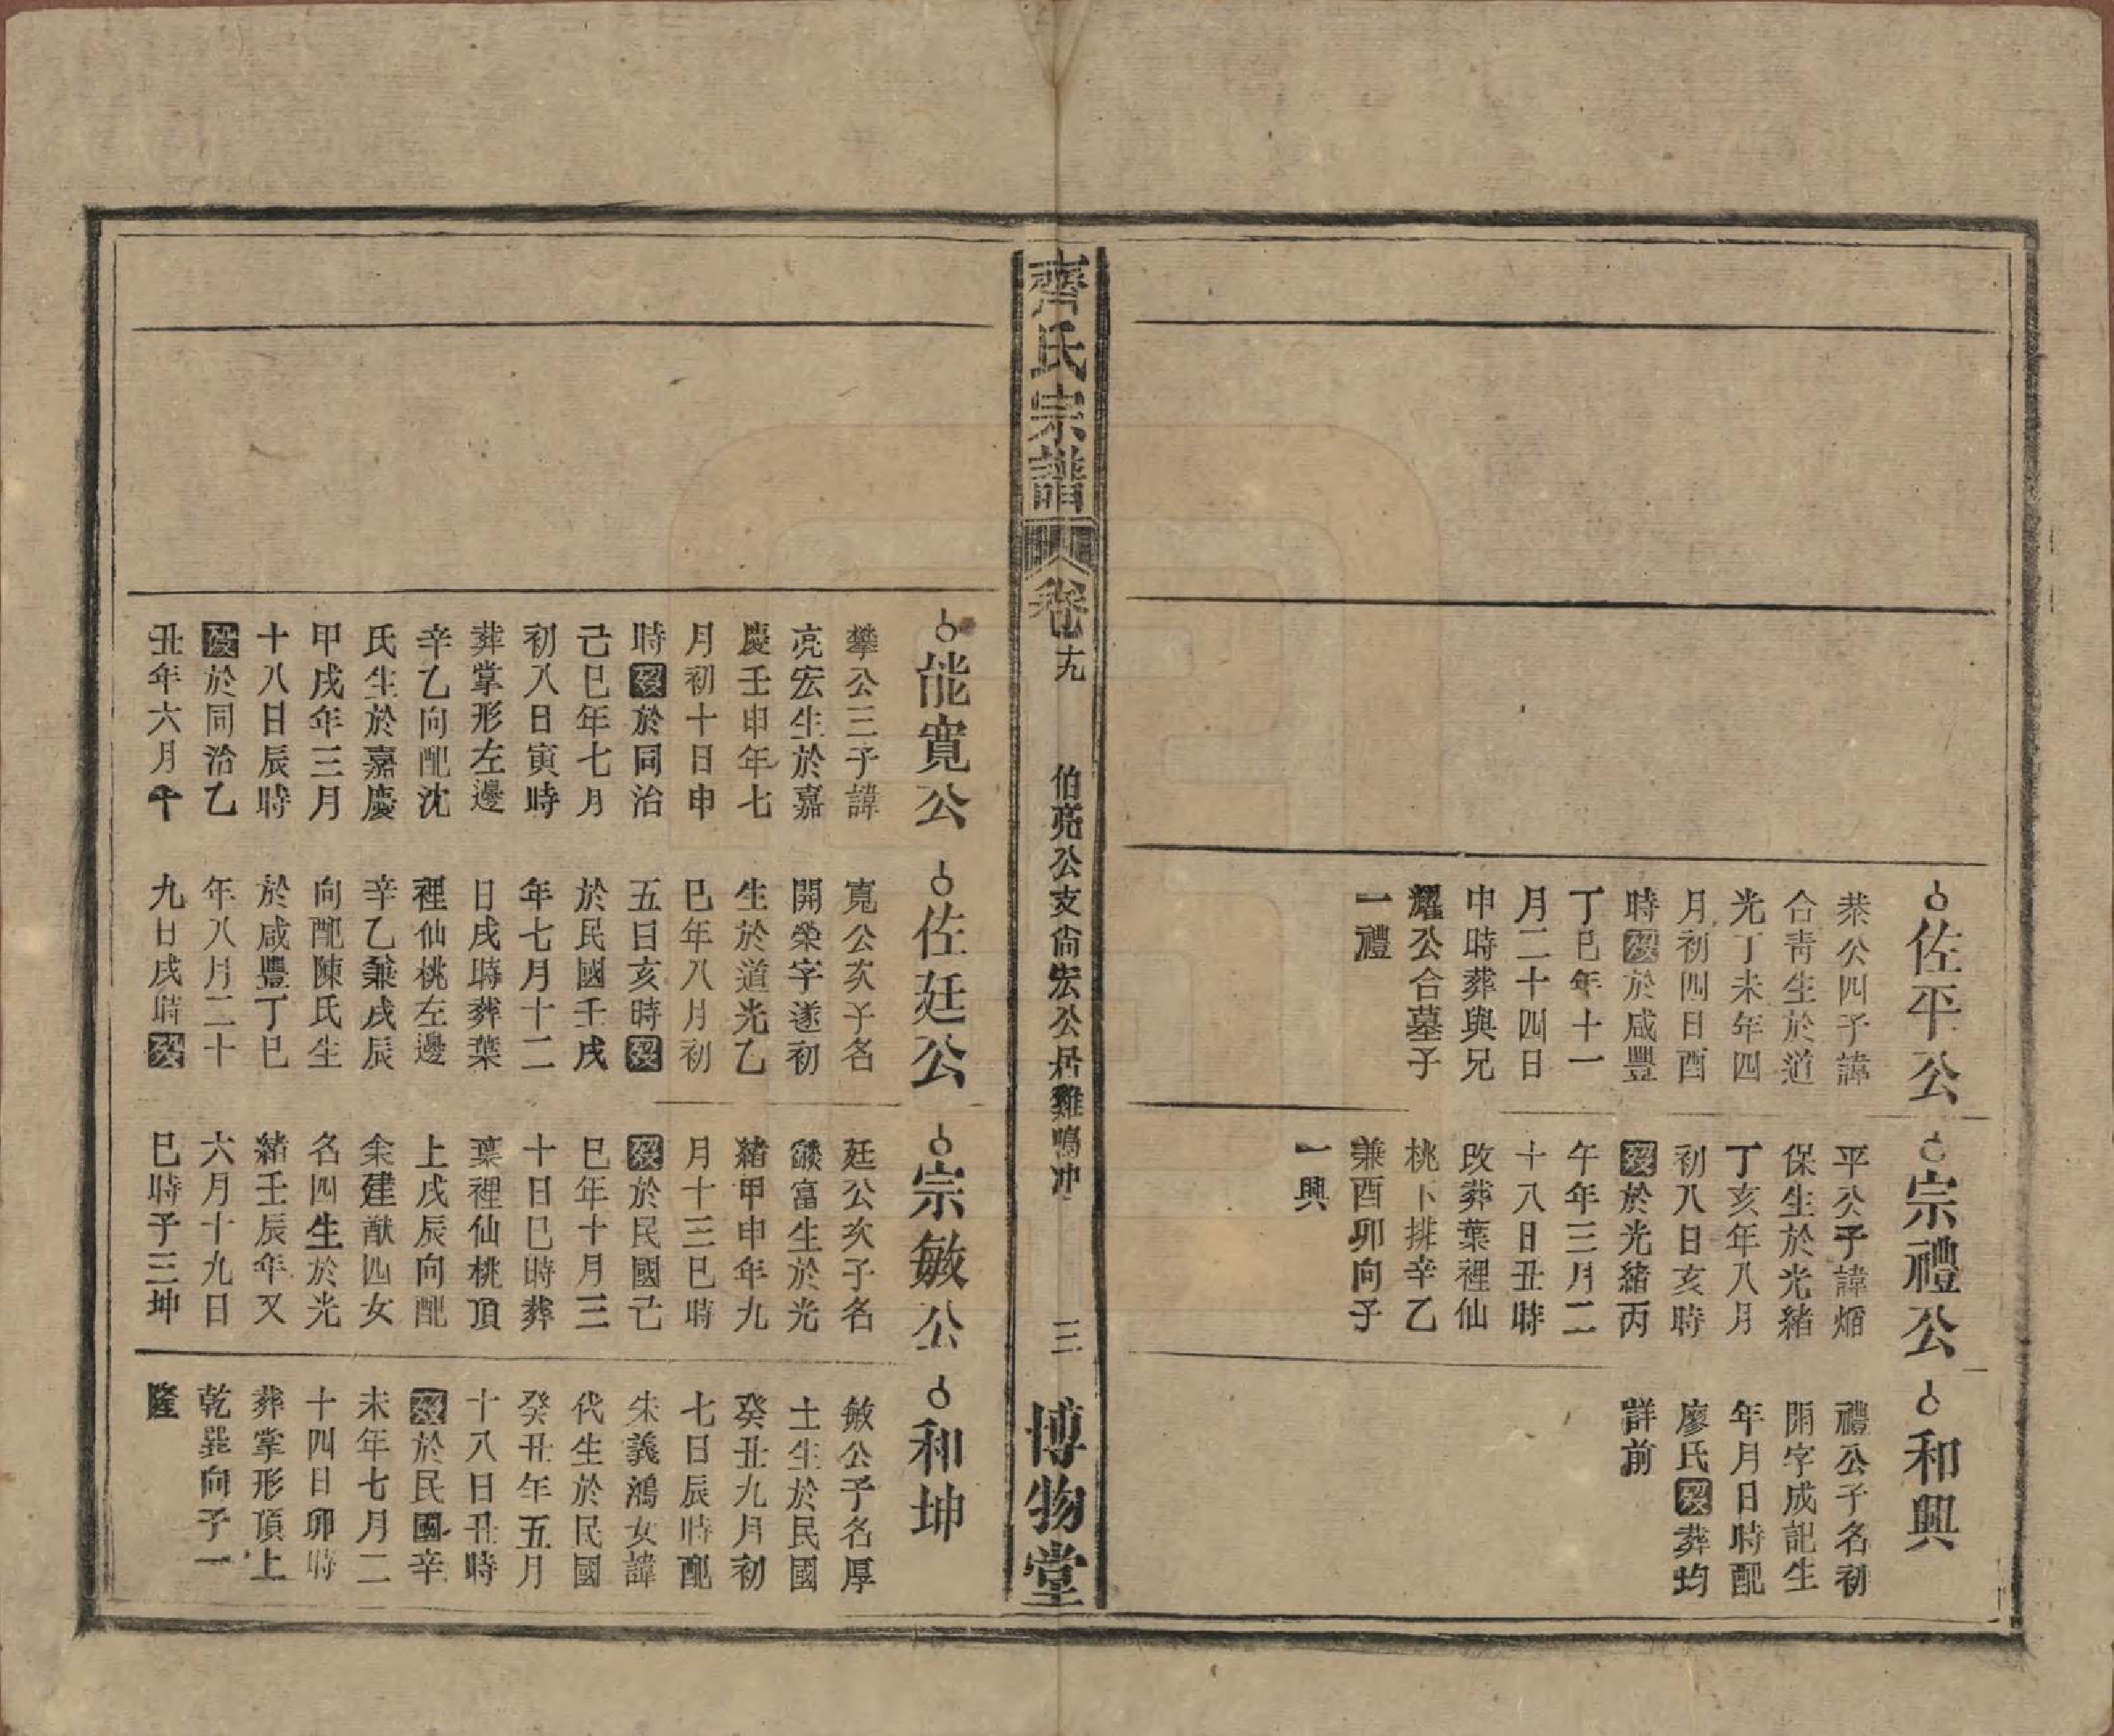 佐平公
恭公四子諱
合靑生於道
光丁未年四
月初四日酉
時歿於咸豐
丁巳年十一
月二十四日
申時葬與兄
耀公合墓子
一禮
宗禮公
平公子諱
保生於光緒
丁亥年八月
初八日亥時
歿於光緒丙
午年三月二
十八日丑時
改葬葉裡仙
桃下排辛乙
兼酉卯向子
一興
和興
禮公子名初
開字成記生
年月日時配
廖氏歿葬均
詳前
齊氏宗譜
卷十九
伯亮公支尙宏公居雞鳴冲
三
博物堂
能寬公
攀公三子諱
亮宏生於嘉
慶壬申年七
月初十日申
時歿於同治
己巳年七月
初八日寅時
葬掌形左邊
辛乙向配沈
氏生於嘉慶
甲戌年三月
十八日辰時
歿於同治乙
丑年六月十
九日戌時歿
佐廷公
寬公次子名
開榮字遂初
生於道光乙
巳年八月初
五日亥時歿
於民國壬戌
年七月十二
日戌時葬葉
裡仙桃左邊
辛乙兼戌辰
向配陳氏生
於咸豐丁巳
年八月二十
九日戌時歿
宗敏公
廷公次子名
毓富生於光
緒甲申年九
月十三巳時
歿於民國己
巳年十月三
十日巳時葬
葉裡仙桃頂
上戌辰向配
余建猷四女
名四生於光
緒壬辰年又
六月十九日
巳時子三坤
和坤
敏公子名厚
土生於民國
癸丑九月初
七日辰時配
朱義鴻女諱
代生於民國
癸丑年五月
十八日丑時
歿於民國辛
未年七月二
十四日卯時
葬掌形頂上
乾巽向子一
隆